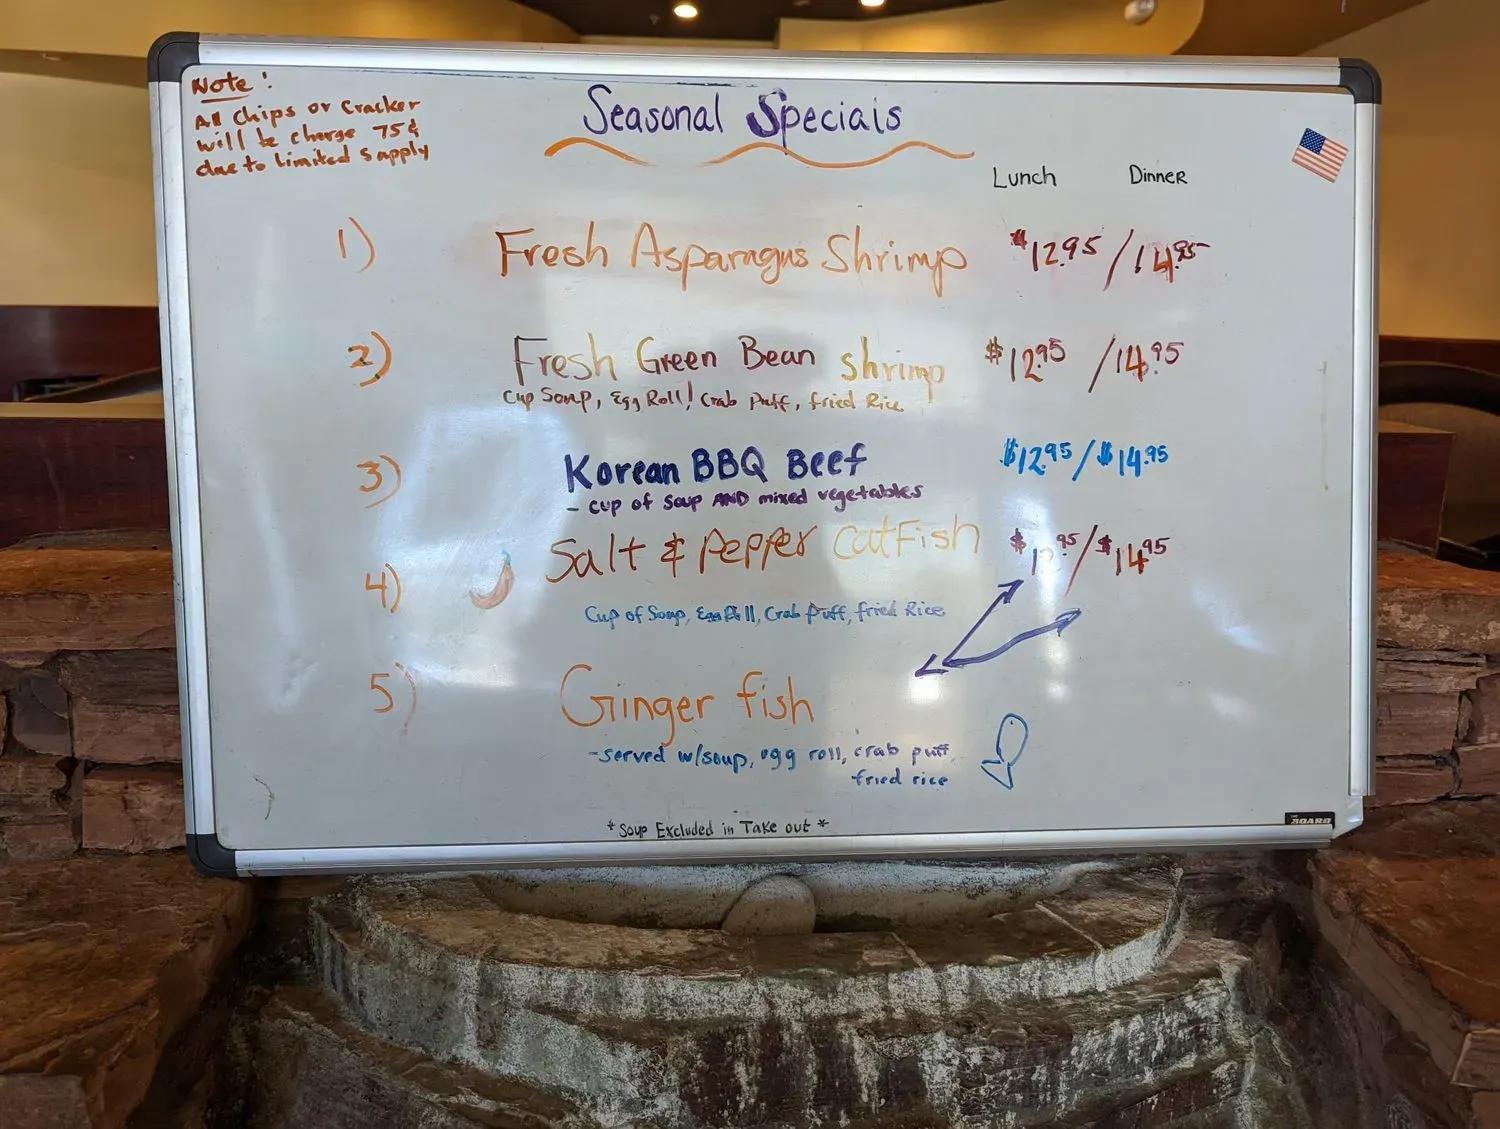 Note:
All Chips or Cracker
will be charge 75¢
due to limited supply
Seasonal Specials
Lunch Dinner
1) Fresh Asparagus Shrimp $12.95 / 14.95
2) Fresh Green Bean shrimp $12.95 / 14.95
Cup Soup, Egg Roll! Crab Puff, fried Rice
3) Korean BBQ Beef $12.95 / $14.95
- cup of soup AND mixed vegetables
4) Salt & Pepper Catfish $12.95 / $14.95
Cup of Soup, Egg Roll, Crab Puff, fried Rice
5) Ginger fish
- served w/soup, egg roll, crab puff,
fried rice
* Soup Excluded in Take out *
BOARD